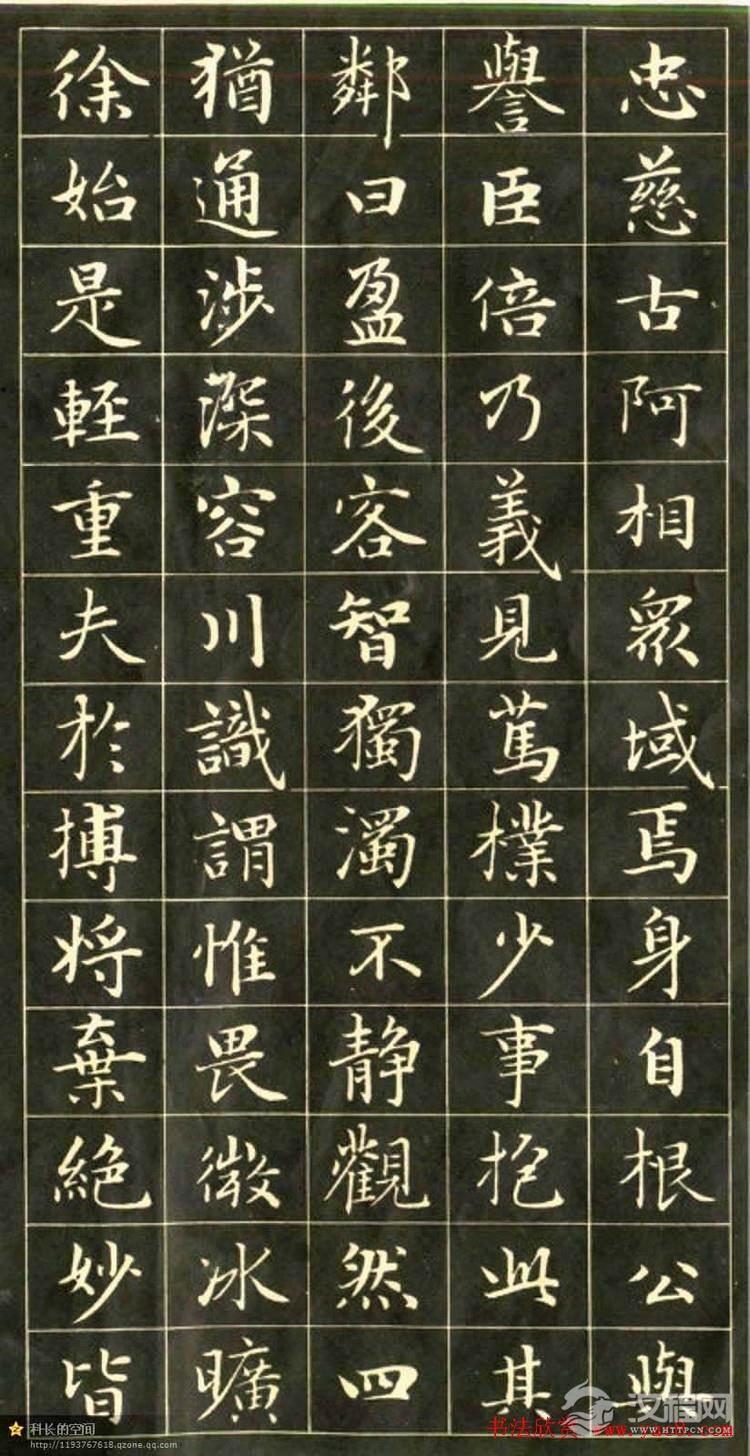 忠慈古阿相眾域焉身自根公與
譽臣倍乃義見篤樸少事抱此其
鄰曰盈後客智獨濁不静觀然四
猶通涉深容川識謂惟畏微冰曠
徐始是輕重夫於搏将棄絕妙皆
科长的空间
http://1193767618.qzone.qq.com
书法欣赏
汉程网
WWW.HTTPCN.COM